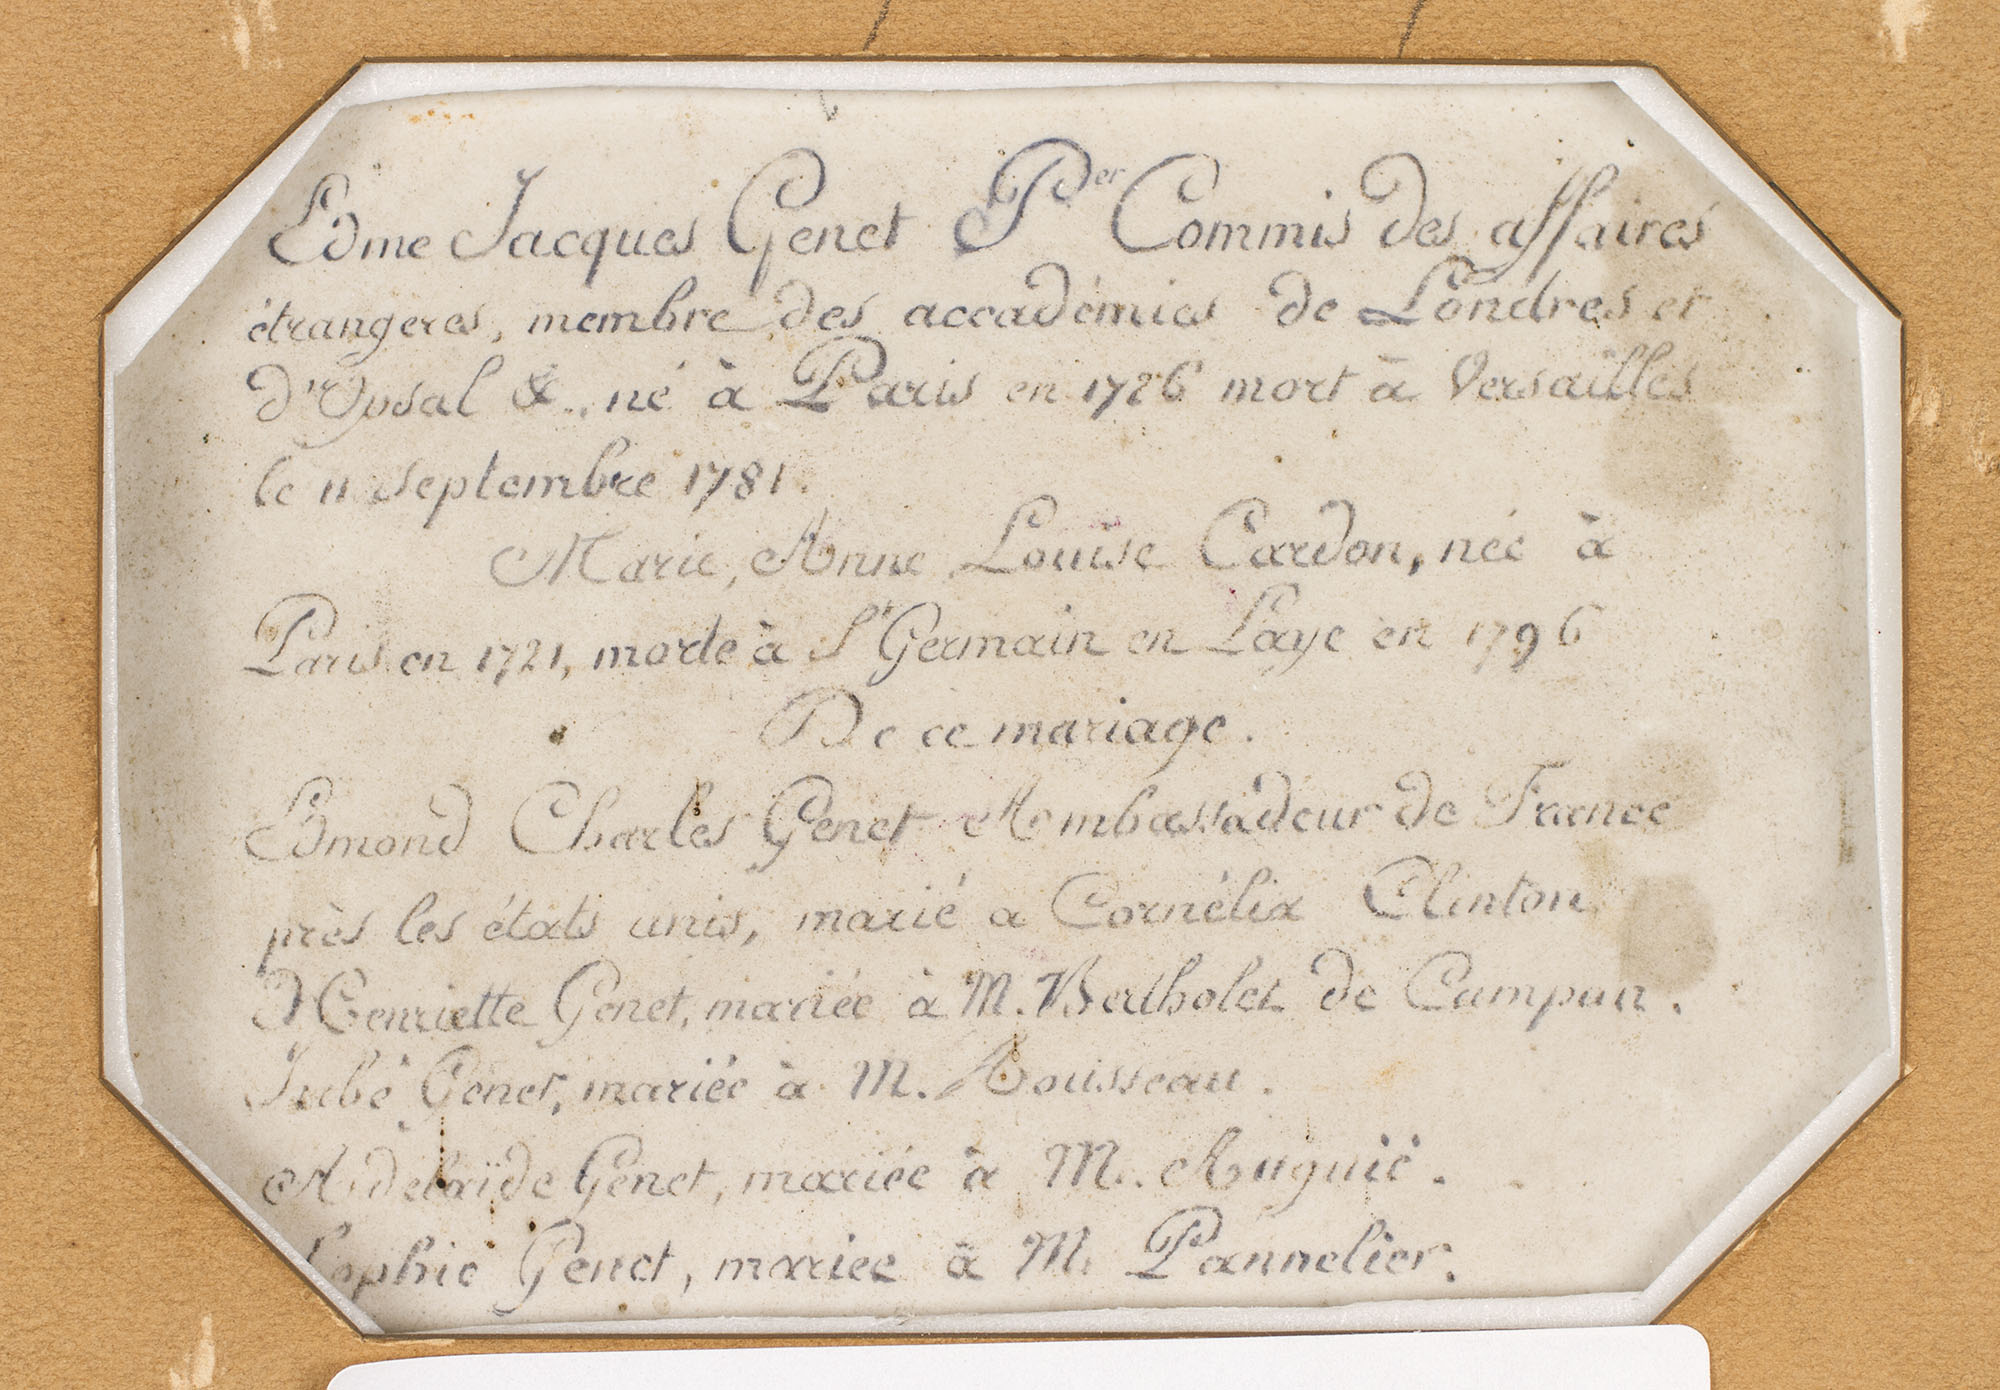 Edme Jacques Genet Per Commis des affaires
étrangeres, membre des accadémies de Londres et
d'Upsal &.., né à Paris en 1726 mort à Versailles
le 11 septembre 1781.
Marie, Anne Louise Cardon, née à
Paris en 1721, morte à St Germain en Laye en 1796
De ce mariage.
Edmond Charles Genet Ambassadeur de France
près les états unis, marié a Cornélia Clinton
Henriette Genet, mariée à M. Bertholet de Campan.
Julie Genet, mariée à M. Rousseau.
Adelaïde Genet, mariée à M. Auguié.
Sophie Genet, mariee à M. Pannelier.